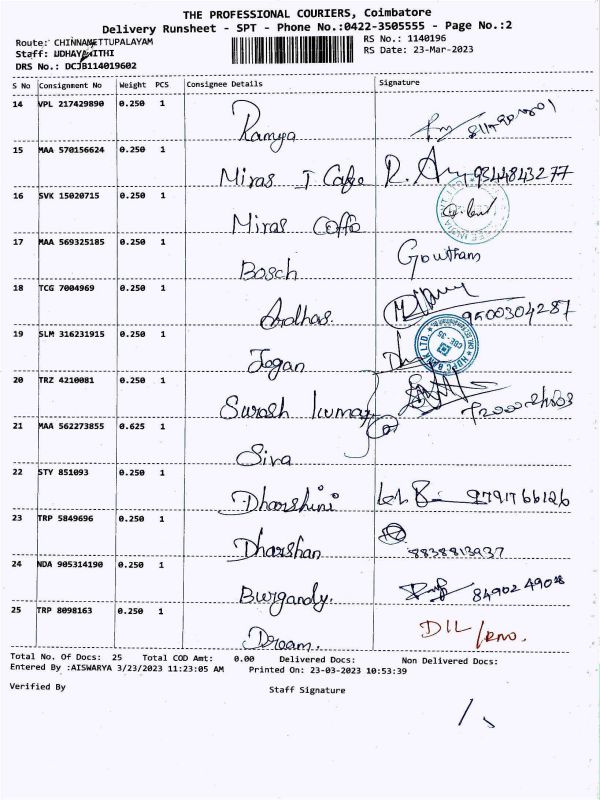 THE PROFESSIONAL COURIERS, Coimbatore
Delivery Runsheet - SPT - Phone No.:0422-3505555 - Page No.:2
Route: CHINNAMETTUPALAYAM RS No.: 1140196
Staff: UDHAYANITHI RS Date: 23-Mar-2023
DRS No.: DCJB114019602
S No Consignment No Weight PCS Consignee Details Signature
14 VPL 217429890 0.250 1
Ramya
15 MAA 570156624 0.250 1
Miras 9344843277
16 SVK 15020715 0.250 1
Miras Coffe
17 MAA 569325185 0.250 1 Goutham
Bosch
18 TCG 7004969 0.250 1
9500304287
19 SLM 316231915 0.250 1
HDFC BANK LTD
Jogan
20 TRZ 4210081 0.250 1
Suresh kumar
21 MAA 562273855 0.625 1
Siva
22 STY 851093 0.250 1
Dharshini 9791766126
23 TRP 5849696 0.250 1
Dharshan 8838813937
24 NDA 905314190 0.250 1
Burgandy
25 TRP 8098163 0.250 1
Dream. DIL
Total No. Of Docs: 25 Total COD Amt: 0.00 Delivered Docs: Non Delivered Docs:
Entered By :AISWARYA 3/23/2023 11:23:05 AM Printed On: 23-03-2023 10:53:39
Verified By Staff Signature